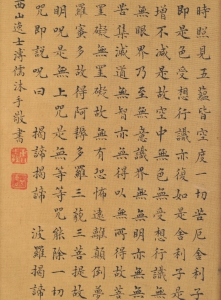 時照見五蘊皆空度一切苦厄舍利子
即是色受想行識亦復如是舍利子是
增不減是故空中無色無受想行識無
無眼界乃至無意識界無無明亦無無
苦集滅道無智亦無得以無所得故菩
罣礙無罣礙故無有恐怖遠離顛倒夢
羅蜜多故得阿耨多羅三藐三菩提故
明咒是無上咒是無等等咒能除一切
咒即說咒曰 揭諦揭諦 波羅揭諦
西山逸士溥儒沐手敬書